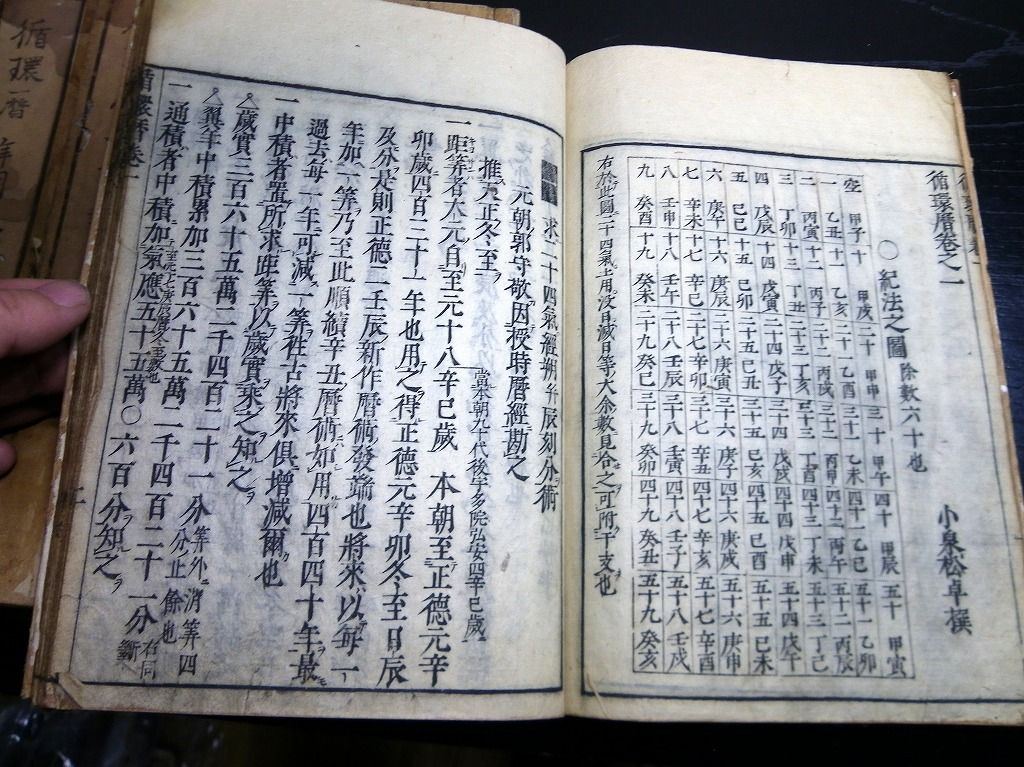 循環暦卷之一
小泉松卓撰
〇紀法之圖 除數六十也
空 甲子 十 甲戌 二十 甲申 三十 甲午 四十 甲辰 五十 甲寅
一 乙丑 十一 乙亥 二十一 乙酉 三十一 乙未 四十一 乙巳 五十一 乙卯
二 丙寅 十二 丙子 二十二 丙戌 三十二 丙申 四十二 丙午 五十二 丙辰
三 丁卯 十三 丁丑 二十三 丁亥 三十三 丁酉 四十三 丁未 五十三 丁巳
四 戊辰 十四 戊寅 二十四 戊子 三十四 戊戌 四十四 戊申 五十四 戊午
五 己巳 十五 己卯 二十五 己丑 三十五 己亥 四十五 己酉 五十五 己未
六 庚午 十六 庚辰 二十六 庚寅 三十六 庚子 四十六 庚戌 五十六 庚申
七 辛未 十七 辛巳 二十七 辛卯 三十七 辛丑 四十七 辛亥 五十七 辛酉
八 壬申 十八 壬午 二十八 壬辰 三十八 壬寅 四十八 壬子 五十八 壬戌
九 癸酉 十九 癸未 二十九 癸巳 三十九 癸卯 四十九 癸丑 五十九 癸亥
右於此圖二十四氣土用没日滅日等大余數見合之可附干支也
求二十四氣經朔并辰刻分術
元朝郭守敬因授時暦經勘之
推天正冬至
一距筭者大元自至元十八辛巳歲 當本朝九十代後宇多院弘安四辛巳歲 本朝至正德元辛
卯歲四百三十一年也用之得正德元辛卯冬至日辰
及分是則正德二壬辰新作暦術發端也將來以每一
年加一筭乃至此順續辛丑暦術如用四百四十年最
過去每一年可減一筭往古將來俱增減爾也
一中積者置所求距筭以歲實乘之知之
歲實三百六十五萬二千四百二十一分 筭外消筭四分止餘也
翼年中積累加三百六十五萬二千四百二十一分 右同斷
一通積者中積加氣應五十五萬〇六百分知之
循環暦